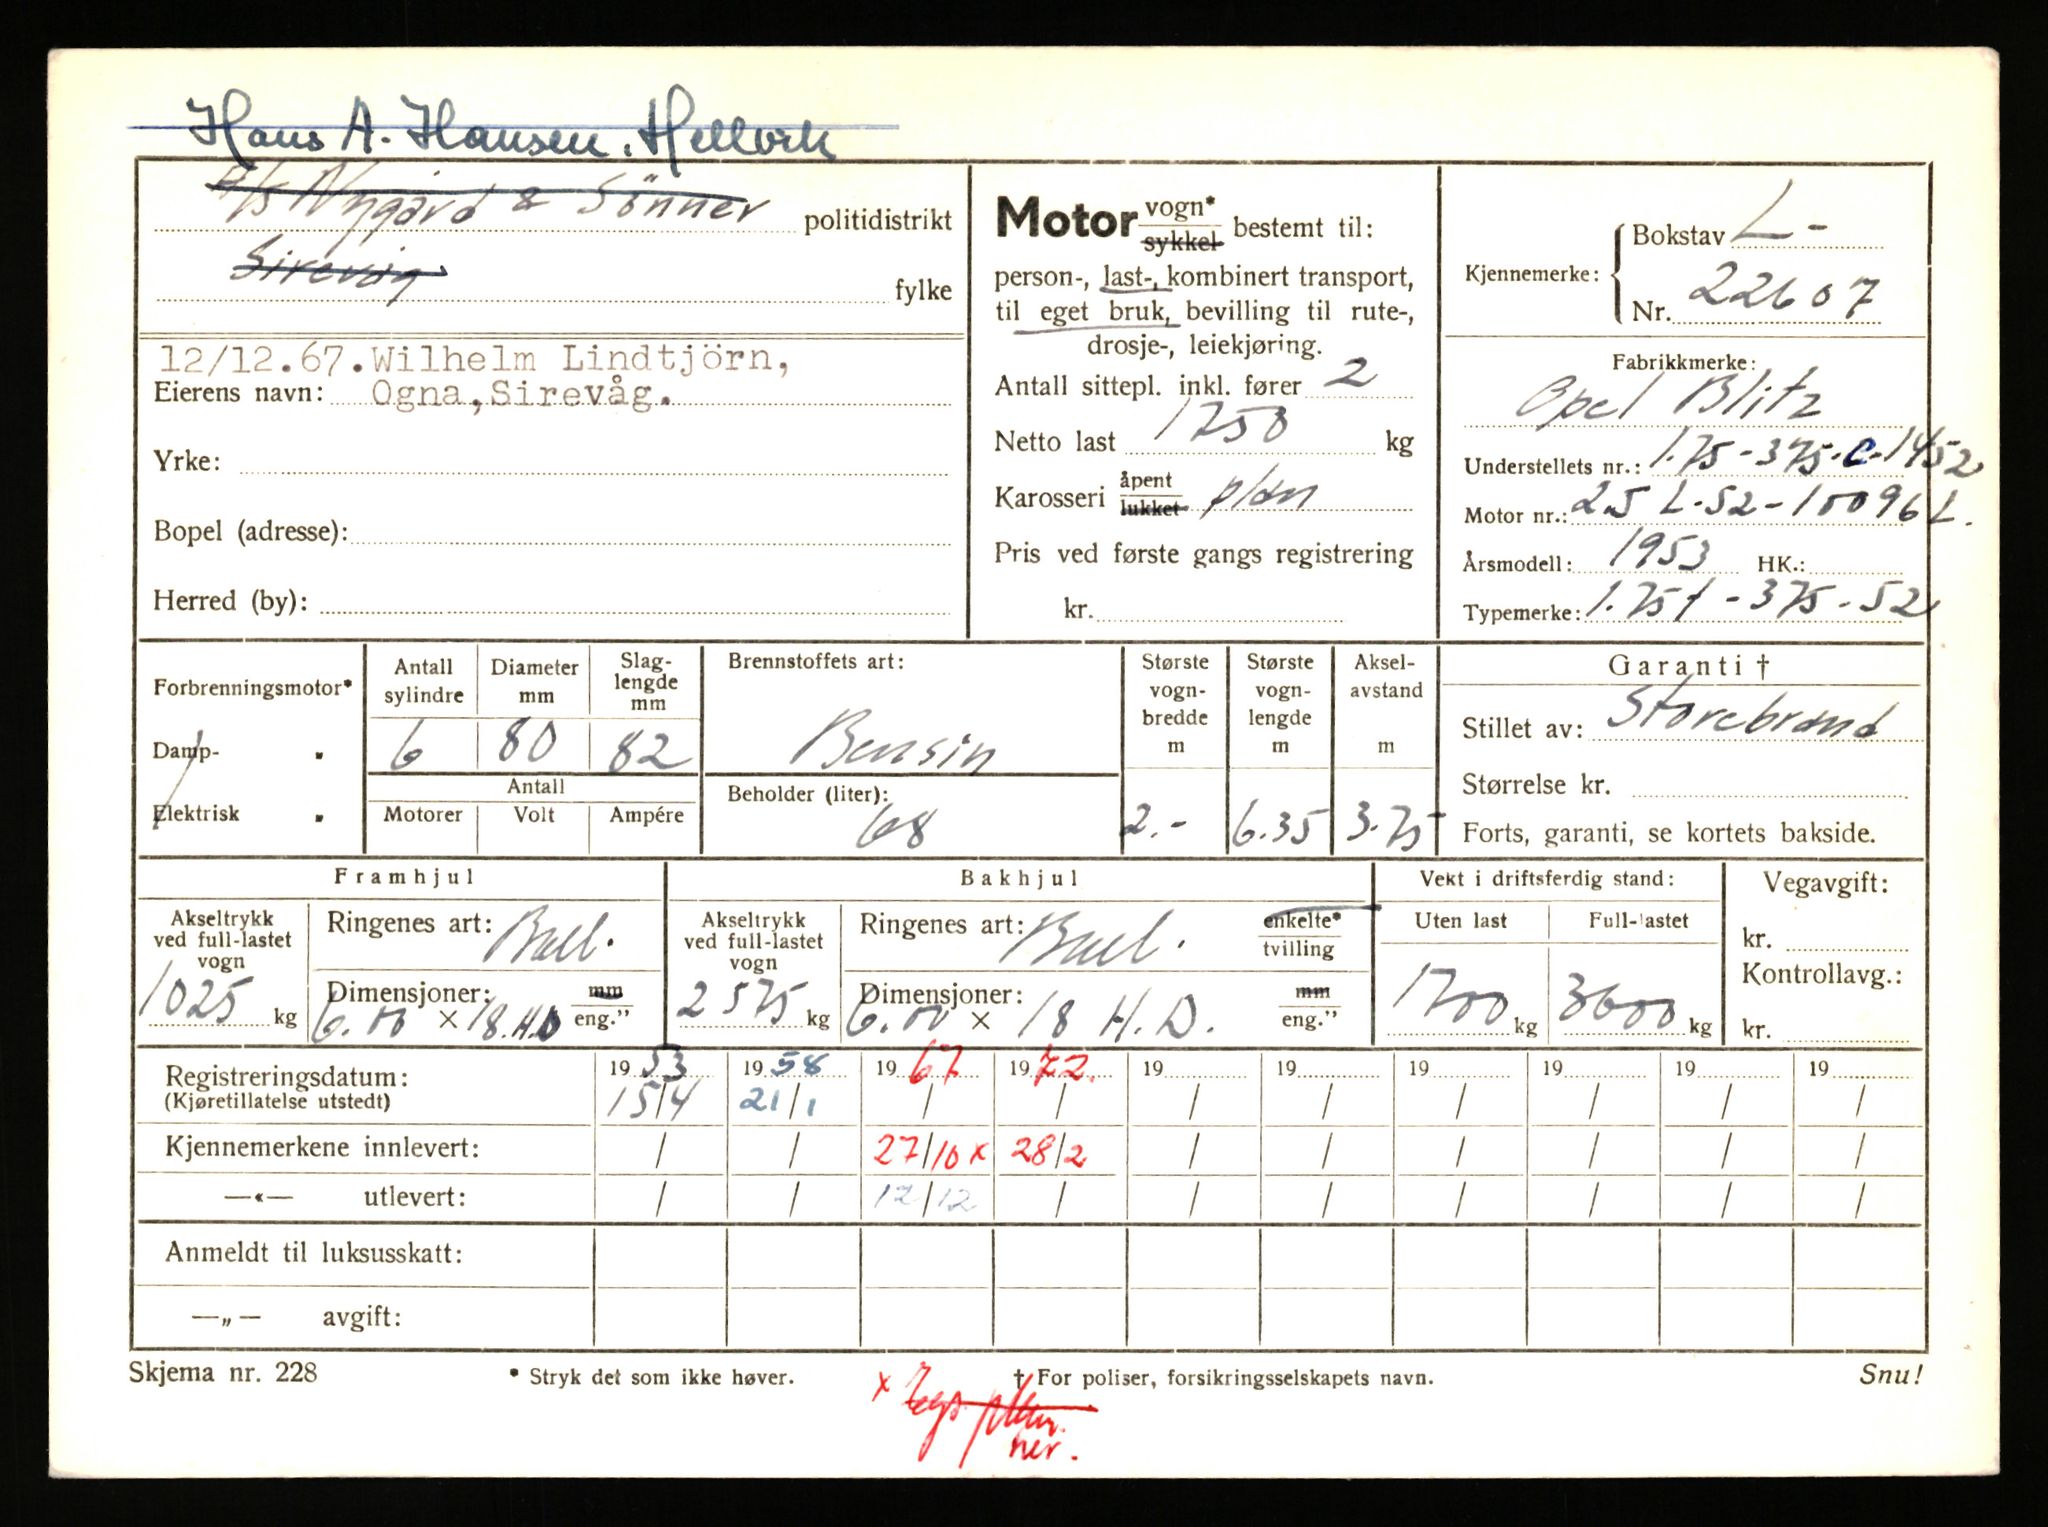 Hans A. Hansen. Hellvik
A/S Nygård & Sönner politidistrikt
Sirevåg fylke
12/12.67. Wilhelm Lindtjörn,
Eierens navn: Ogna, Sirevåg.
Yrke:
Bopel (adresse):
Herred (by):
Motor vogn* sykkel bestemt til:
person-, last-, kombinert transport,
til eget bruk, bevilling til rute-,
drosje-, leiekjøring.
Antall sittepl. inkl. fører 2
Netto last 1750 kg
Karosseri åpent lukket plan
Pris ved første gangs registrering
kr.
Kjennemerke: Bokstav L-
Nr. 22607
Fabrikkmerke:
Opel Blitz
Understellets nr.: 1.75-375-C-1452
Motor nr.: 2.5 L-52-10096 L.
Årsmodell: 1953 HK.:
Typemerke: 1.75t-375-52
Forbrenningsmotor*
Damp- "
Elektrisk "
Antall sylindre Diameter mm Slag-lengde mm
6 80 82
Antall
Motorer Volt Ampére
Brennstoffets art:
Bensin
Beholder (liter):
68
Største vogn-bredde m
2.-
Største vogn-lengde m
6.35
Aksel-avstand m
3.75
Garanti †
Stillet av: Storebrand
Størrelse kr.
Forts, garanti, se kortets bakside.
Framhjul
Akseltrykk ved full-lastet vogn
1025 kg
Ringenes art: Ball.
Dimensjoner: mm eng."
6.00 × 18.H.D
Bakhjul
Akseltrykk ved full-lastet vogn
2575 kg
Ringenes art: Ball. enkelte* tvilling
Dimensjoner: mm eng."
6.00 × 18 H.D.
Vekt i driftsferdig stand:
Uten last Full-lastet
1700 kg 3600 kg
Vegavgift:
kr.
Kontrollavg.:
kr.
Registreringsdatum: 1953 1958 1967 1972. 19 19 19 19 19 19
(Kjøretillatelse utstedt) 15/4 21/1 / / / / / / / /
Kjennemerkene innlevert: / / 27/10 x 28/2 / / / / / /
—«— utlevert: / / 12/12 / / / / / / /
Anmeldt til luksusskatt:
—„— avgift:
Skjema nr. 228 * Stryk det som ikke høver. † For poliser, forsikringsselskapets navn. Snu!
x
ner.